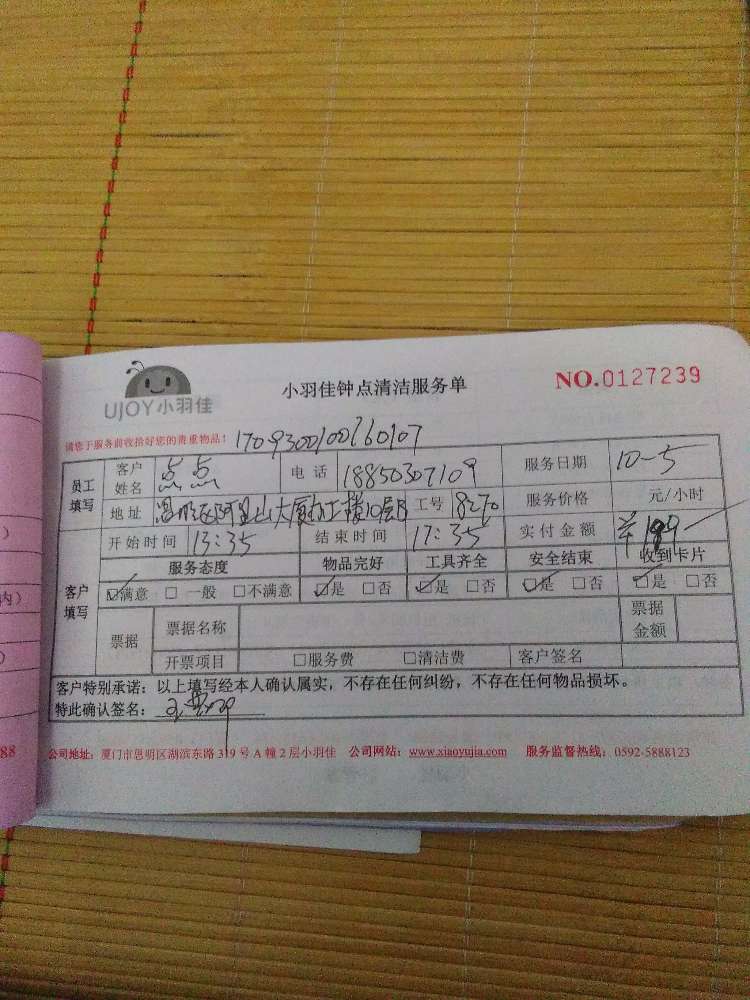 小羽佳钟点清洁服务单
NO.0127239
UJOY小羽佳
请您于服务前收拾好您的贵重物品! 1709300100760107
员工填写 客户姓名 点点 电话 18850307109 服务日期 10-5
地址 思明区阿里山大厦 楼10层B 工号 8270 服务价格 元/小时
客户填写 开始时间 13:35 结束时间 17:35 实付金额 ¥199
服务态度 物品完好 工具齐全 安全结束 收到卡片
☑满意 □一般 □不满意 ☑是 □否 ☑是 □否 ☑是 □否 ☑是 □否
票据 票据名称 票据金额
开票项目 □服务费 □清洁费 客户签名
客户特别承诺:以上填写经本人确认属实,不存在任何纠纷,不存在任何物品损坏。
特此确认签名:
公司地址:厦门市思明区湖滨东路319号A幢2层小羽佳 公司网站:www.xiaoyujia.com 服务监督热线:0592-5888123
内)
88